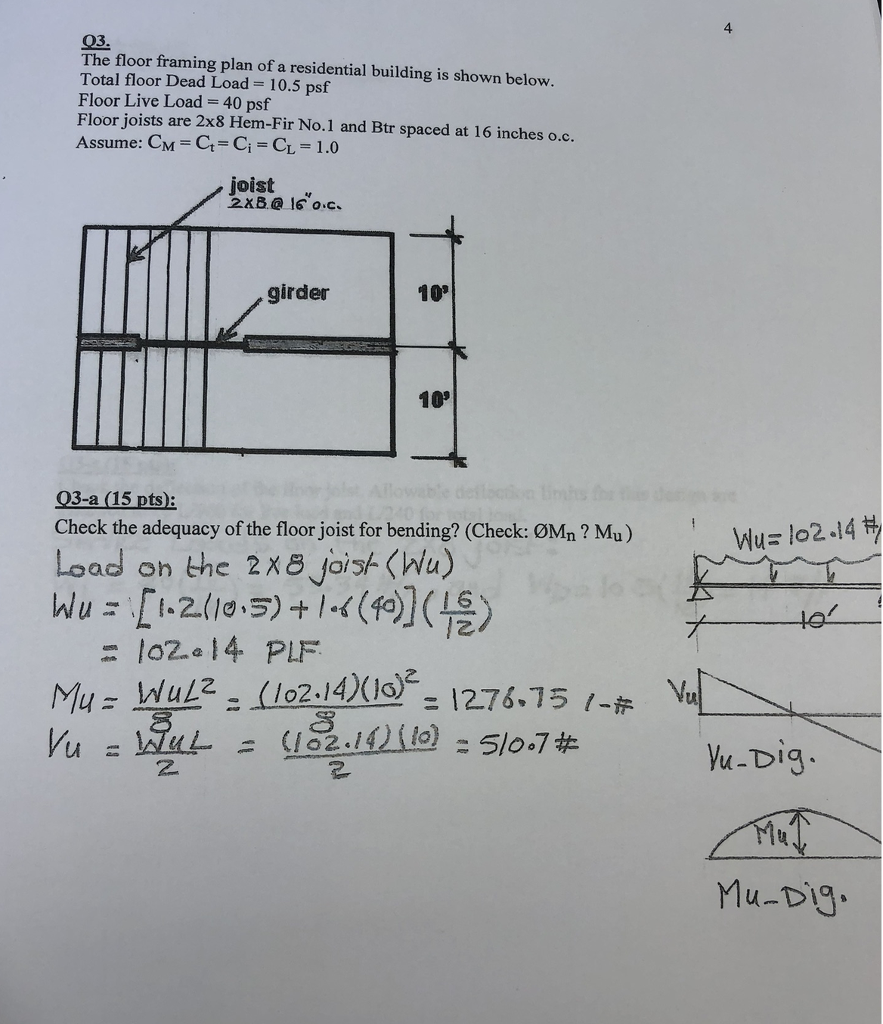 4
Q3.
The floor framing plan of a residential building is shown below.
Total floor Dead Load = 10.5 psf
Floor Live Load = 40 psf
Floor joists are 2x8 Hem-Fir No.1 and Btr spaced at 16 inches o.c.
Assume: CM = Ct = Ci = CL = 1.0
joist
2X8 @ 16" o.c.
girder
10'
10'
Q3-a (15 pts):
Check the adequacy of the floor joist for bending? (Check: ØMn ? Mu)
Load on the 2X8 joist (Wu)
Wu = [1.2(10.5) + 1.6(40)](16/12)
= 102.14 PLF
Mu = WuL²/8 = (102.14)(10)²/8 = 1276.75 '-#
Vu = WuL/2 = (102.14)(10)/2 = 510.7#
Wu=102.14 #/
10'
Vu
Vu-Dig.
Mu
Mu-Dig.